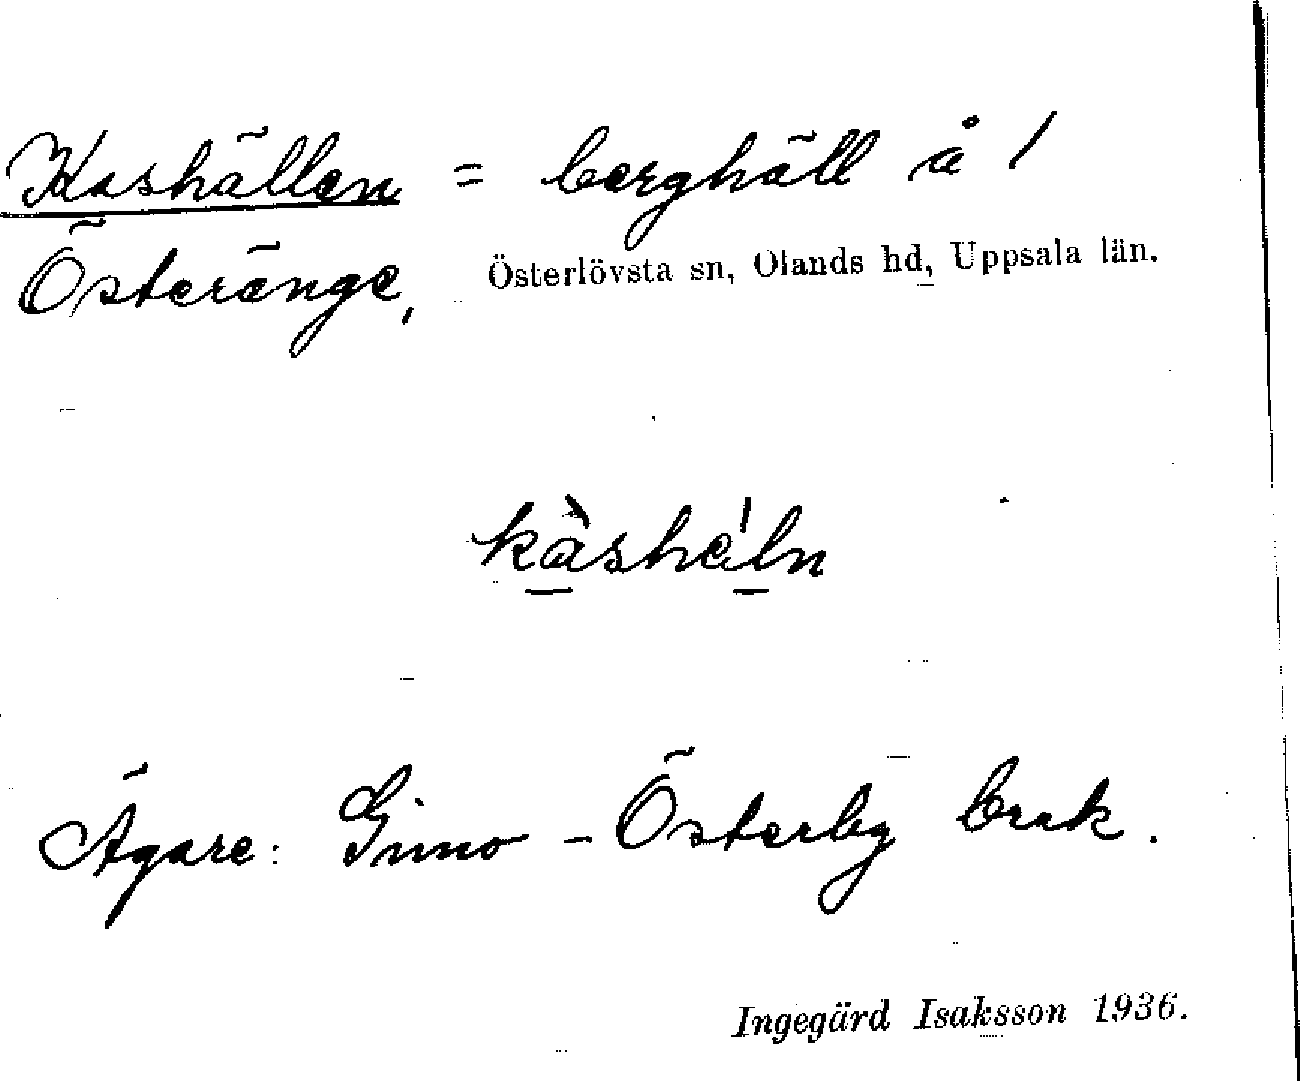 Kashällen = berghäll å /
Österänge, Österlövsta sn, Olands hd, Uppsala län.
kàshéln
Ägare: Gimo - Österby bruk.
Ingegärd Isaksson 1936.